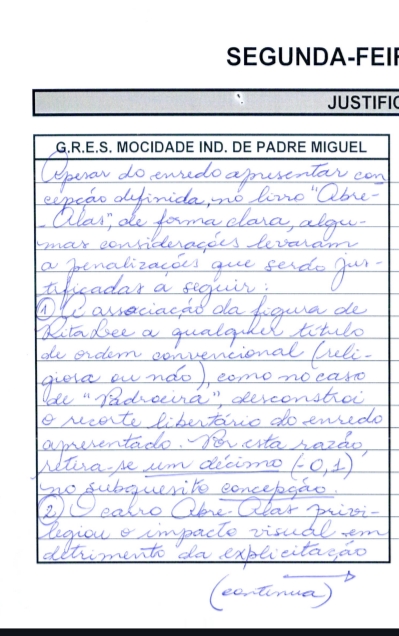 SEGUNDA-FEIR
JUSTIFIC
G.R.E.S. MOCIDADE IND. DE PADRE MIGUEL
Apesar do enredo apresentar con
cepção definida, no livro "Abre-
-Alas", de forma clara, algu-
mas considerações levaram
a penalizações que serão jus-
tificadas a seguir:
① A associação da figura de
Rita Lee a qualquer título
de ordem convencional (reli-
giosa ou não), como no caso
de "Padroeira", desconstroi
o recorte libertário do enredo
apresentado. Por esta razão,
retira-se um décimo (-0,1)
no subquesito concepção.
② O carro Abre Alas privi-
legiou o impacto visual em
detrimento da explicitação
(continua)